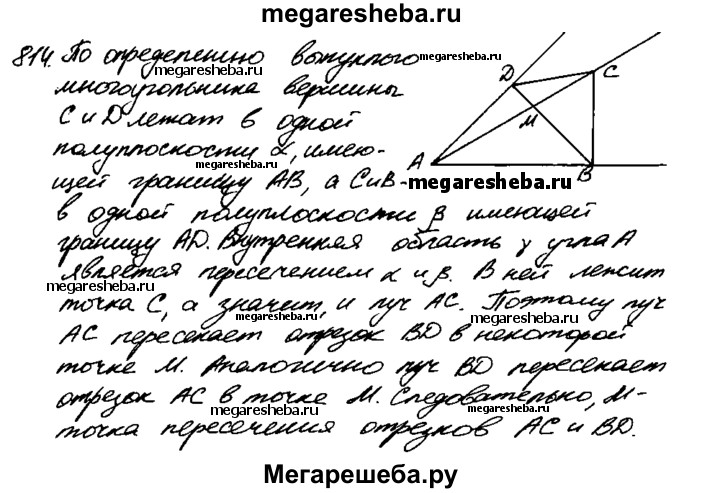 megaresheba.ru
814. По определению выпуклого megaresheba.ru
megaresheba.ru
многоугольника вершины
C и D лежат в одной
полуплоскости α, имею-
megaresheba.ru
щей границу AB, а C и B-
megaresheba.ru
в одной полуплоскости β имеющей
границу AD. Внутренняя область γ угла A
является пересечением α и β. В ней лежит
megaresheba.ru
точка C, а значит, и луч AC. Поэтому луч
AC пересекает отрезок BD в некоторой
точке M. Аналогично луч BD пересекает
отрезок AC в точке M. Следовательно, M-
megaresheba.ru
точка пересечения отрезков AC и BD.
D
C
M
A
B
Мегарешеба.ру